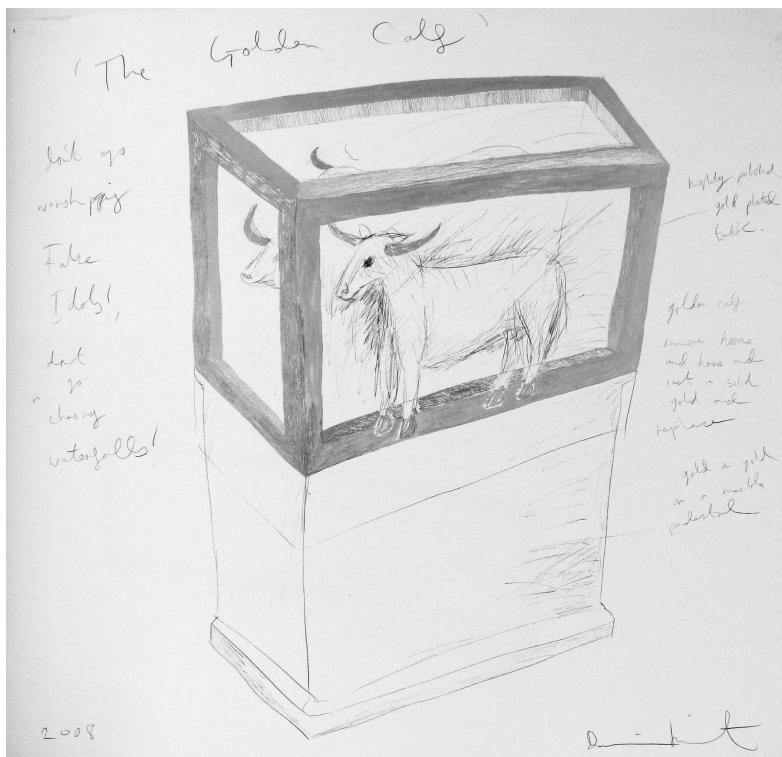 'The Golden Calf'
don't go
worshipping
False
Idols!,
don't
go
chasing
waterfalls!
highly polished
gold plated
tank.
golden calf
remove hooves
and horns and
cast in solid
gold and
replace
gold on gold
on a marble
pedestal
2008
Damien Hirst